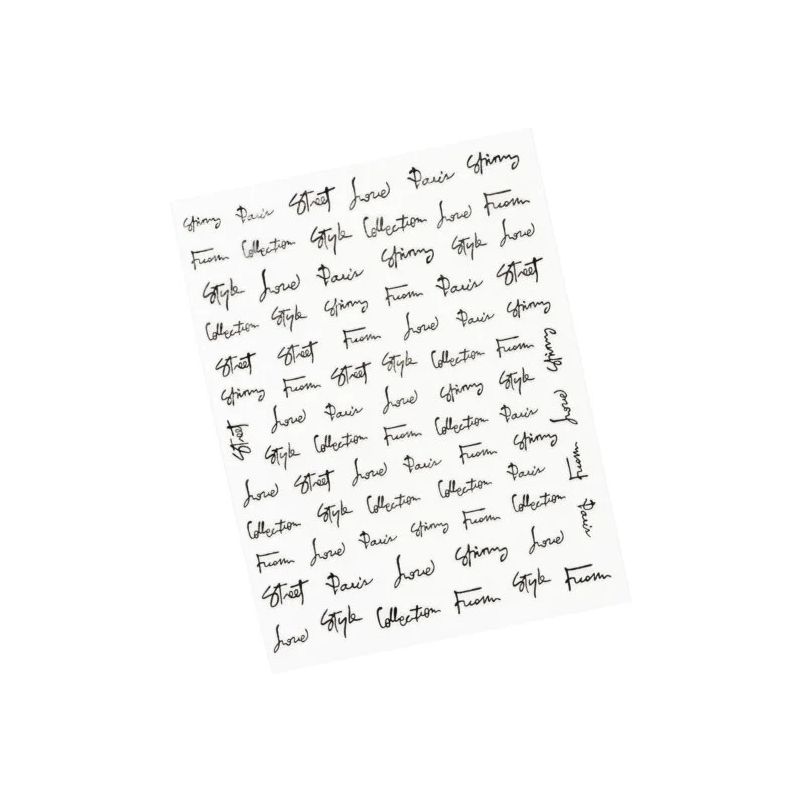 Spring Paris Street Love Paris Spring
From Collection Style Collection Love From
Style Love Paris Spring Style Love
Collection Style Spring From Paris Street
Street Street From Love Paris Spring
Spring From Street Style Collection From
Street
Love Paris Love Spring Style
Style Collection From Collection Paris
Love Street Love Paris From Spring
Collection Style Collection Collection Paris
From Love Paris Spring From Collection
Street Paris Love Spring Love
Love Style Collection From Style From
Spring Love From Paris